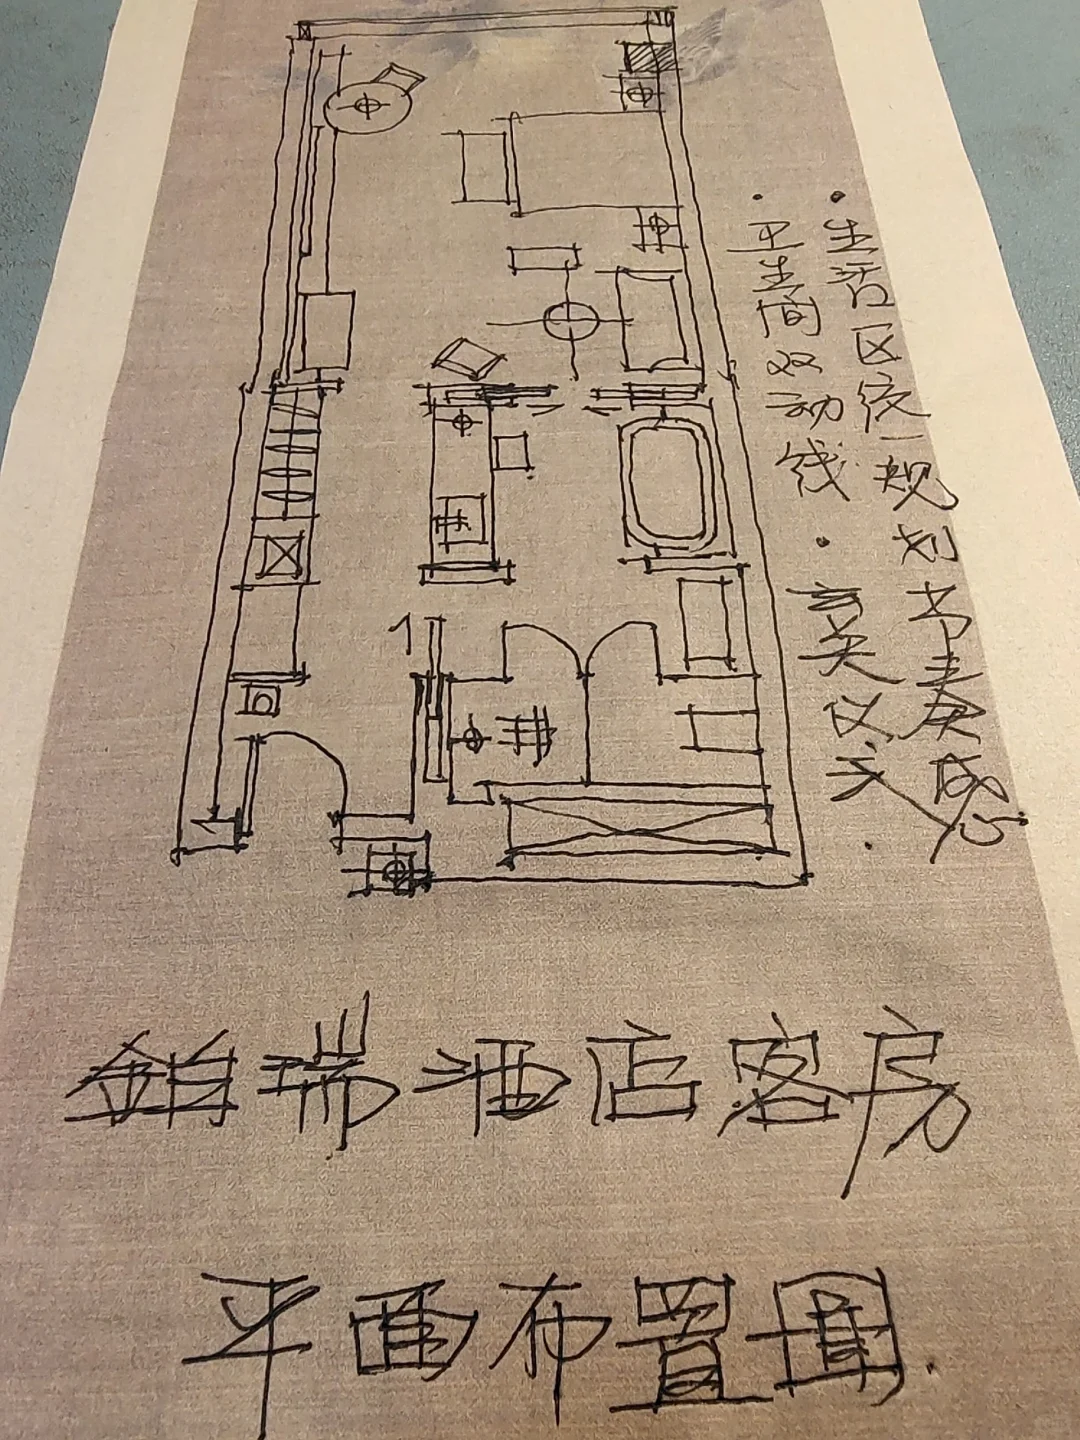 ·生活区统一规划节奏感
·卫生间双动线·玄关仪式·
铂瑞酒店客房
平面布置圖.